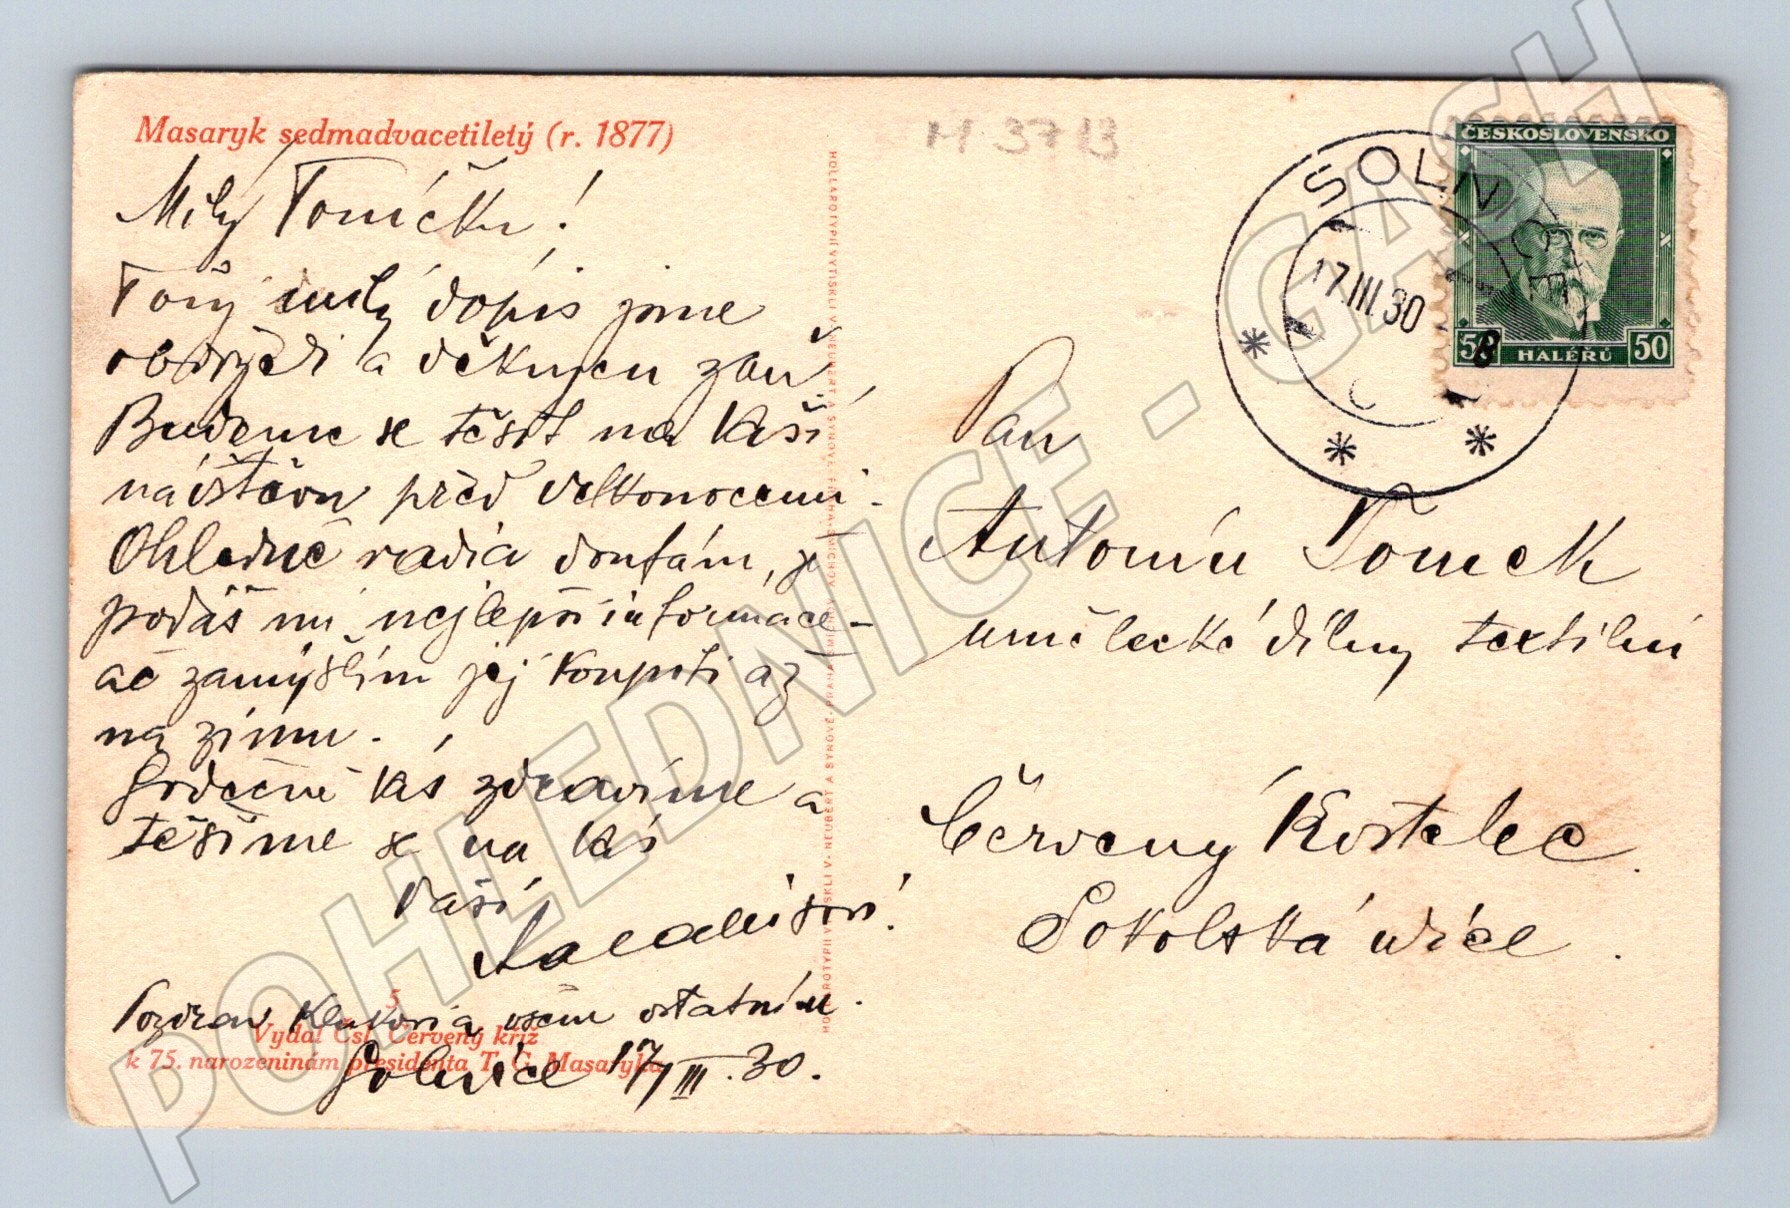 Masaryk sedmadvacetiletý (r. 1877)
Milý Toníčku!
Tvůj milý dopis jsme
obdrželi a děkujeu zaň,
Budeme se těšit na Vaší
náištěvu před velkonocemi.
Ohledně radia doufám, že
podáš mi nejlepší informace-
ač zamýšlím jej koupiti až
na zimu.
Srdečně Vás zdravíme a
těšíme se na Vás
Vaši
Pozdrav všem ostatním.
Solnice 17/III.30.
5
Vydal Čsl. Červený kříž
k 75. narozeninám presidenta T. G. Masaryka
HOLLAROTYPIÍ VYTISKLI V. NEUBERT A SYNOVÉ, PRAHA-SMÍCHOV
M 37 13
ČESKOSLOVENSKO
50 HALÉŘŮ 50
SOLNICE
17.III.30
Pan
Antonín Tomek
umělecké dílny textilní
Červený Kostelec.
Sokolská ulice.
POHLEDNICE - GASH